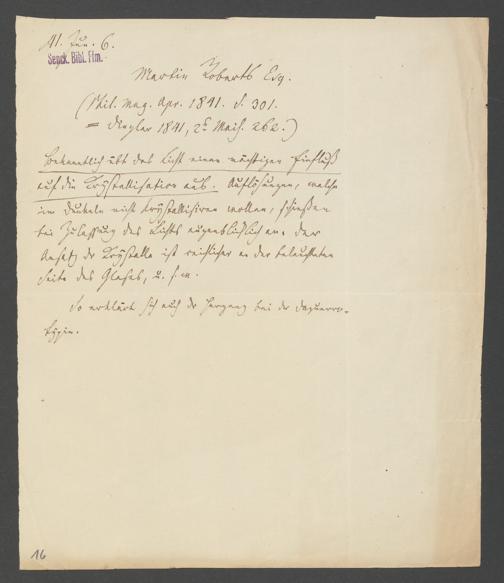 41. Jun. 6.
Senck. Bibl. Ffm.
Martin Roberts Esq.
(Phil. mag. Apr. 1841. S. 301.
= Dingler 1841, 2s Maih. 262.)
Bekanntlich übt das Licht einen mächtigen Einfluß
auf die Krÿstallisation aus. Auflösungen, welche
im Dunkeln nicht krÿstallisiren wollen, schießen
bei Zulassung des Lichts augenblicklich an. Der
Ansatz der Krÿstalle ist reichlicher an der beleuchteten
Seite des Glases, u. s. w.
So erklärt sich auch der Hergang bei der Daguerro-
typie.
16